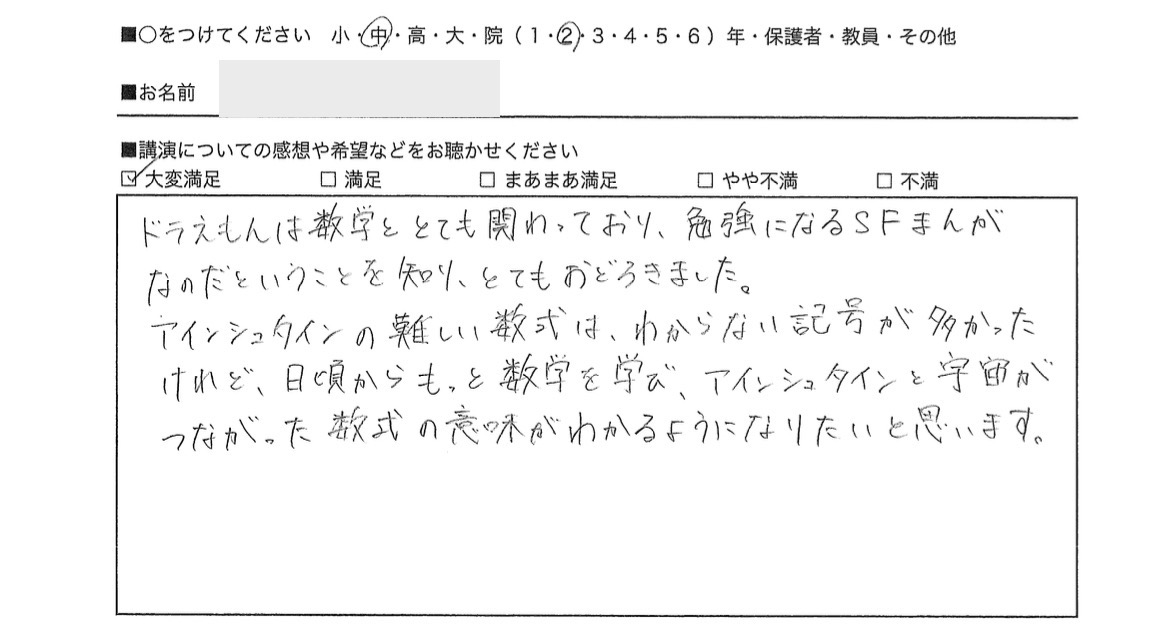 ■○をつけてください 小・中・高・大・院（1・2・3・4・5・6）年・保護者・教員・その他
■お名前
■講演についての感想や希望などをお聴かせください
☑ 大変満足 □ 満足 □ まあまあ満足 □ やや不満 □ 不満
ドラえもんは数学ととても関わっており、勉強になるSFまんが
なのだということを知り、とてもおどろきました。
アインシュタインの難しい数式は、わからない記号が多かった
けれど、日頃からもっと数学を学び、アインシュタインと宇宙が
つながった数式の意味がわかるようになりたいと思います。